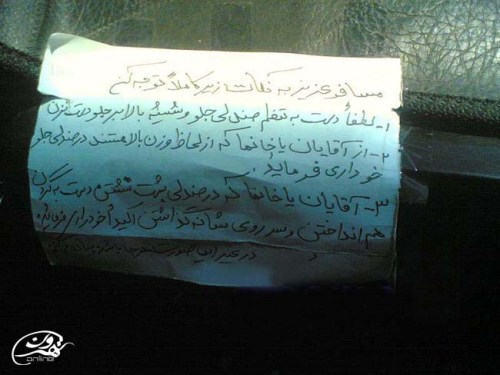 مسافر عزیز به نکات زیر کاملاً توجه کنید
۱- لطفاً دست به تنظیم صندلی جلو و شیشه بالابر جلو دست نزنید
۲- از آقایان یا خانمها که از لحاظ وزن بالا هستند در صندلی جلو
خودداری فرمائید.
۳- آقایان یا خانمها که در صندلی پشت نشستن دست به گردن
هم انداختن و سر روی شانه گذاشتن اکیداً خودداری فرمائید
در غیر این صورت
online